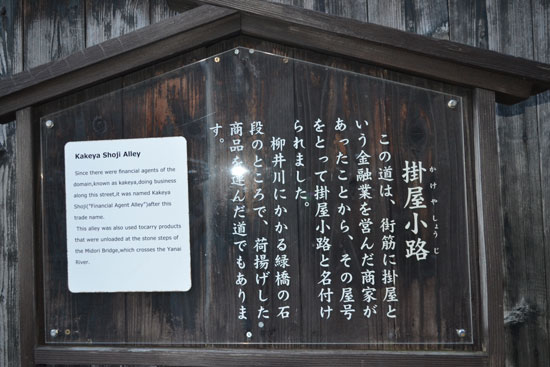 掛屋小路
かけやしょうじ
この道は、街筋に掛屋と
いう金融業を営んだ商家が
あったことから、その屋号
をとって掛屋小路と名付け
られました。
柳井川にかかる緑橋の石
段のところで、荷揚げした
商品を運んだ道でもありま
す。
Kakeya Shoji Alley
Since there were financial agents of the
domain,known as kakeya,doing business
along this street,it was named Kakeya
Shoji("Financial Agent Alley")after this
trade name.
This alley was also used tocarry products
that were unloaded at the stone steps of
the Midori Bridge,which crosses the Yanai
River.